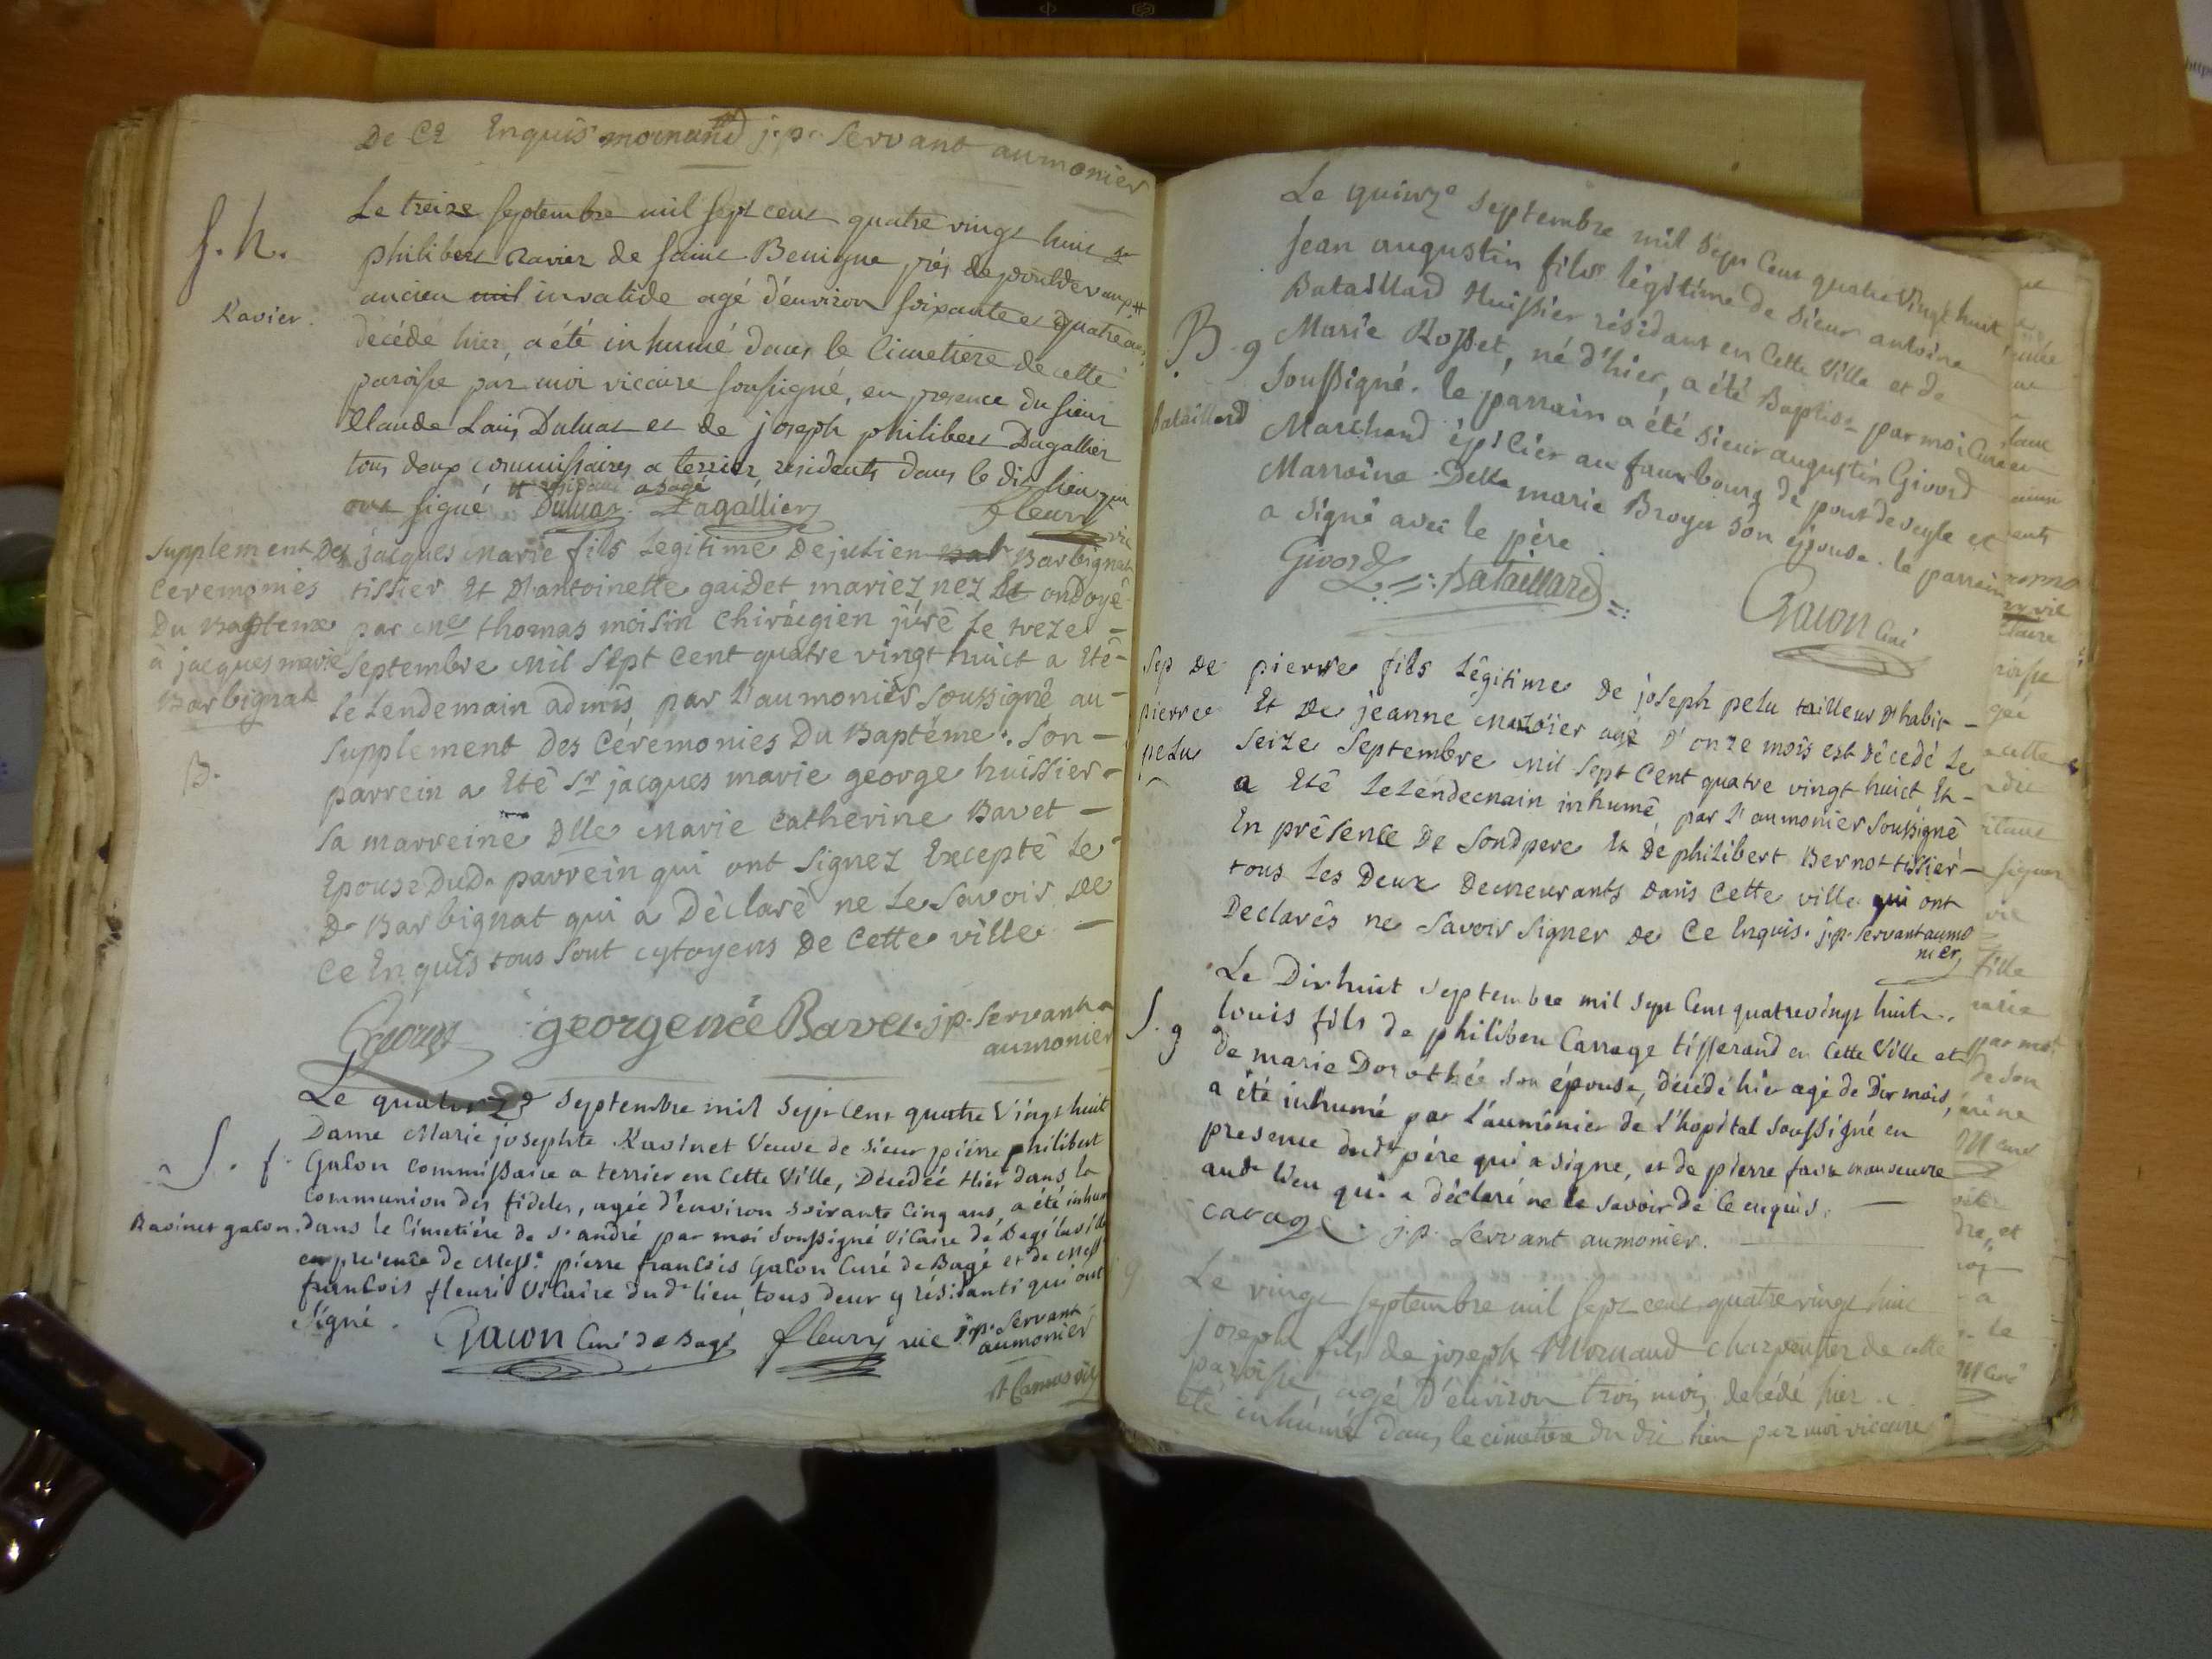 De Ce Enquis mornand j. p. Servant aumonier
Le treize septembre mil sept cent quatre vingt huit Sr
philibert Ravier de saint Benigne près de pontdevaux #
ancien invalide agé d'environ soixante et quatre ans
décédé hier, a été inhumé dans le Cimetiere de cette
paroisse par moi vicaire soussigné, en presence du sieur
Claude Louis Duluat et de joseph philibert Dagallier
tous deux commissaires a terrier residents dans le dit lieu qui
ont signé # residant a bagé
S. h.
Ravier.
Duluat Dagallier fleury vic
Supplement Des
Ceremonies
Du Bapteme
à jacques marie
Barbignat
B.
jacques Marie fils Legitime De julien Barbignat
tissier Et D'antoinette gaidet mariez nez Et ondoyé
par Me thomas moisin chirurgien juré Le treze -
Septembre Mil Sept Cent quatre vingt huict a Eté -
Le Lendemain admis par L'aumonier Soussigné au -
Supplement Des Céremonies Du Baptéme. Son -
parrein a Eté Sr jacques marie george huissier -
Sa marreine Dlle Marie Catherine Bavet -
Epouse Dud. parrein qui ont Signez Excepté Le
Dt Barbignat qui a Déclaré ne Le Savoir De
Ce Enquis tous Sont cytoyens De Cette ville -
George georgeneé Bavet j. p. Servant aumonier
Le quatorze Septembre mil Sept Cent quatre Vingt huit
Dame Marie josephte Ravinet Veuve de Sieur pierre philibert
Galon Commissaire a terrier en Cette Ville, Décédée Hier dans la
Communion des fideles, agée d'environ Soixante Cinq ans, a été inhumée
S. f.
Ravinet galon.
dans le Cimetiére de St andré par moi Soussigné Vicaire de Bagé la ville
en presence de Messe pierre francois Gacon Curé de Bagé et de Messe
francois fleuri Vicaire dudt lieu, tous deux y résidants qui ont
Signé.
Gacon Curé de Bagé fleury vic j. p. Servant
aumonier
Le quinze Septembre mil Sept Cent quatre Vingt huit
Jean augustin fils légitime de Sieur antoine
Bataillard Huissier résidant en Cette Ville et de
Marie Rosset, né d'hier, a été Baptisé par moi Curé
Soussigné. le parrain a été Sieur augustin Givord
Marchand épicier au fauxbourg de pont de veyle et
Marraine Delle marie Broyer Son épouse. le parrain
a Signé avec le père.
B. g
bataillard
Givord Bataillard
Gacon Curé
Sep De
pierre
pelu
pierre fils Légitime De joseph pelu tailleur D'habit -
Et De jeanne Mazoier agé D'onze mois est Décedé Le
Seize Septembre Mil Sept Cent quatre vingt huict Et -
a Eté Le Lendemain inhumé par L'aumonier Soussigné
En présence De Sondpere Et De philibert Bernot tissier -
tous Les Deux Demeurants Dans Cette ville qui ont
Declarés ne Savoir Signer De Ce Enquis. j. p. Servant aumo
nier
Le Dixhuit Septembre mil Sept Cent quatrevingt huit
louis fils de philibert Carrage tisserand en Cette Ville et
de marie Dorothée Son épouse, décédé hier agé de Dix mois,
a été inhumé par l'aumônier de l'hopital Soussigné en
presence dudt père qui a signé, et de pierre favre manoeuvre
audt lieu qui a déclaré ne le savoir de ce enquis.
S. g
carage j. p. Servant aumonier.
Le vingt septembre mil sept cent quatre vingt huit
joseph fils de joseph Mornand charpentier de cette
paroisse, agé d'environ trois mois decédé hier a
été inhumé dans le cimetiere du dit lieu par moi vicaire